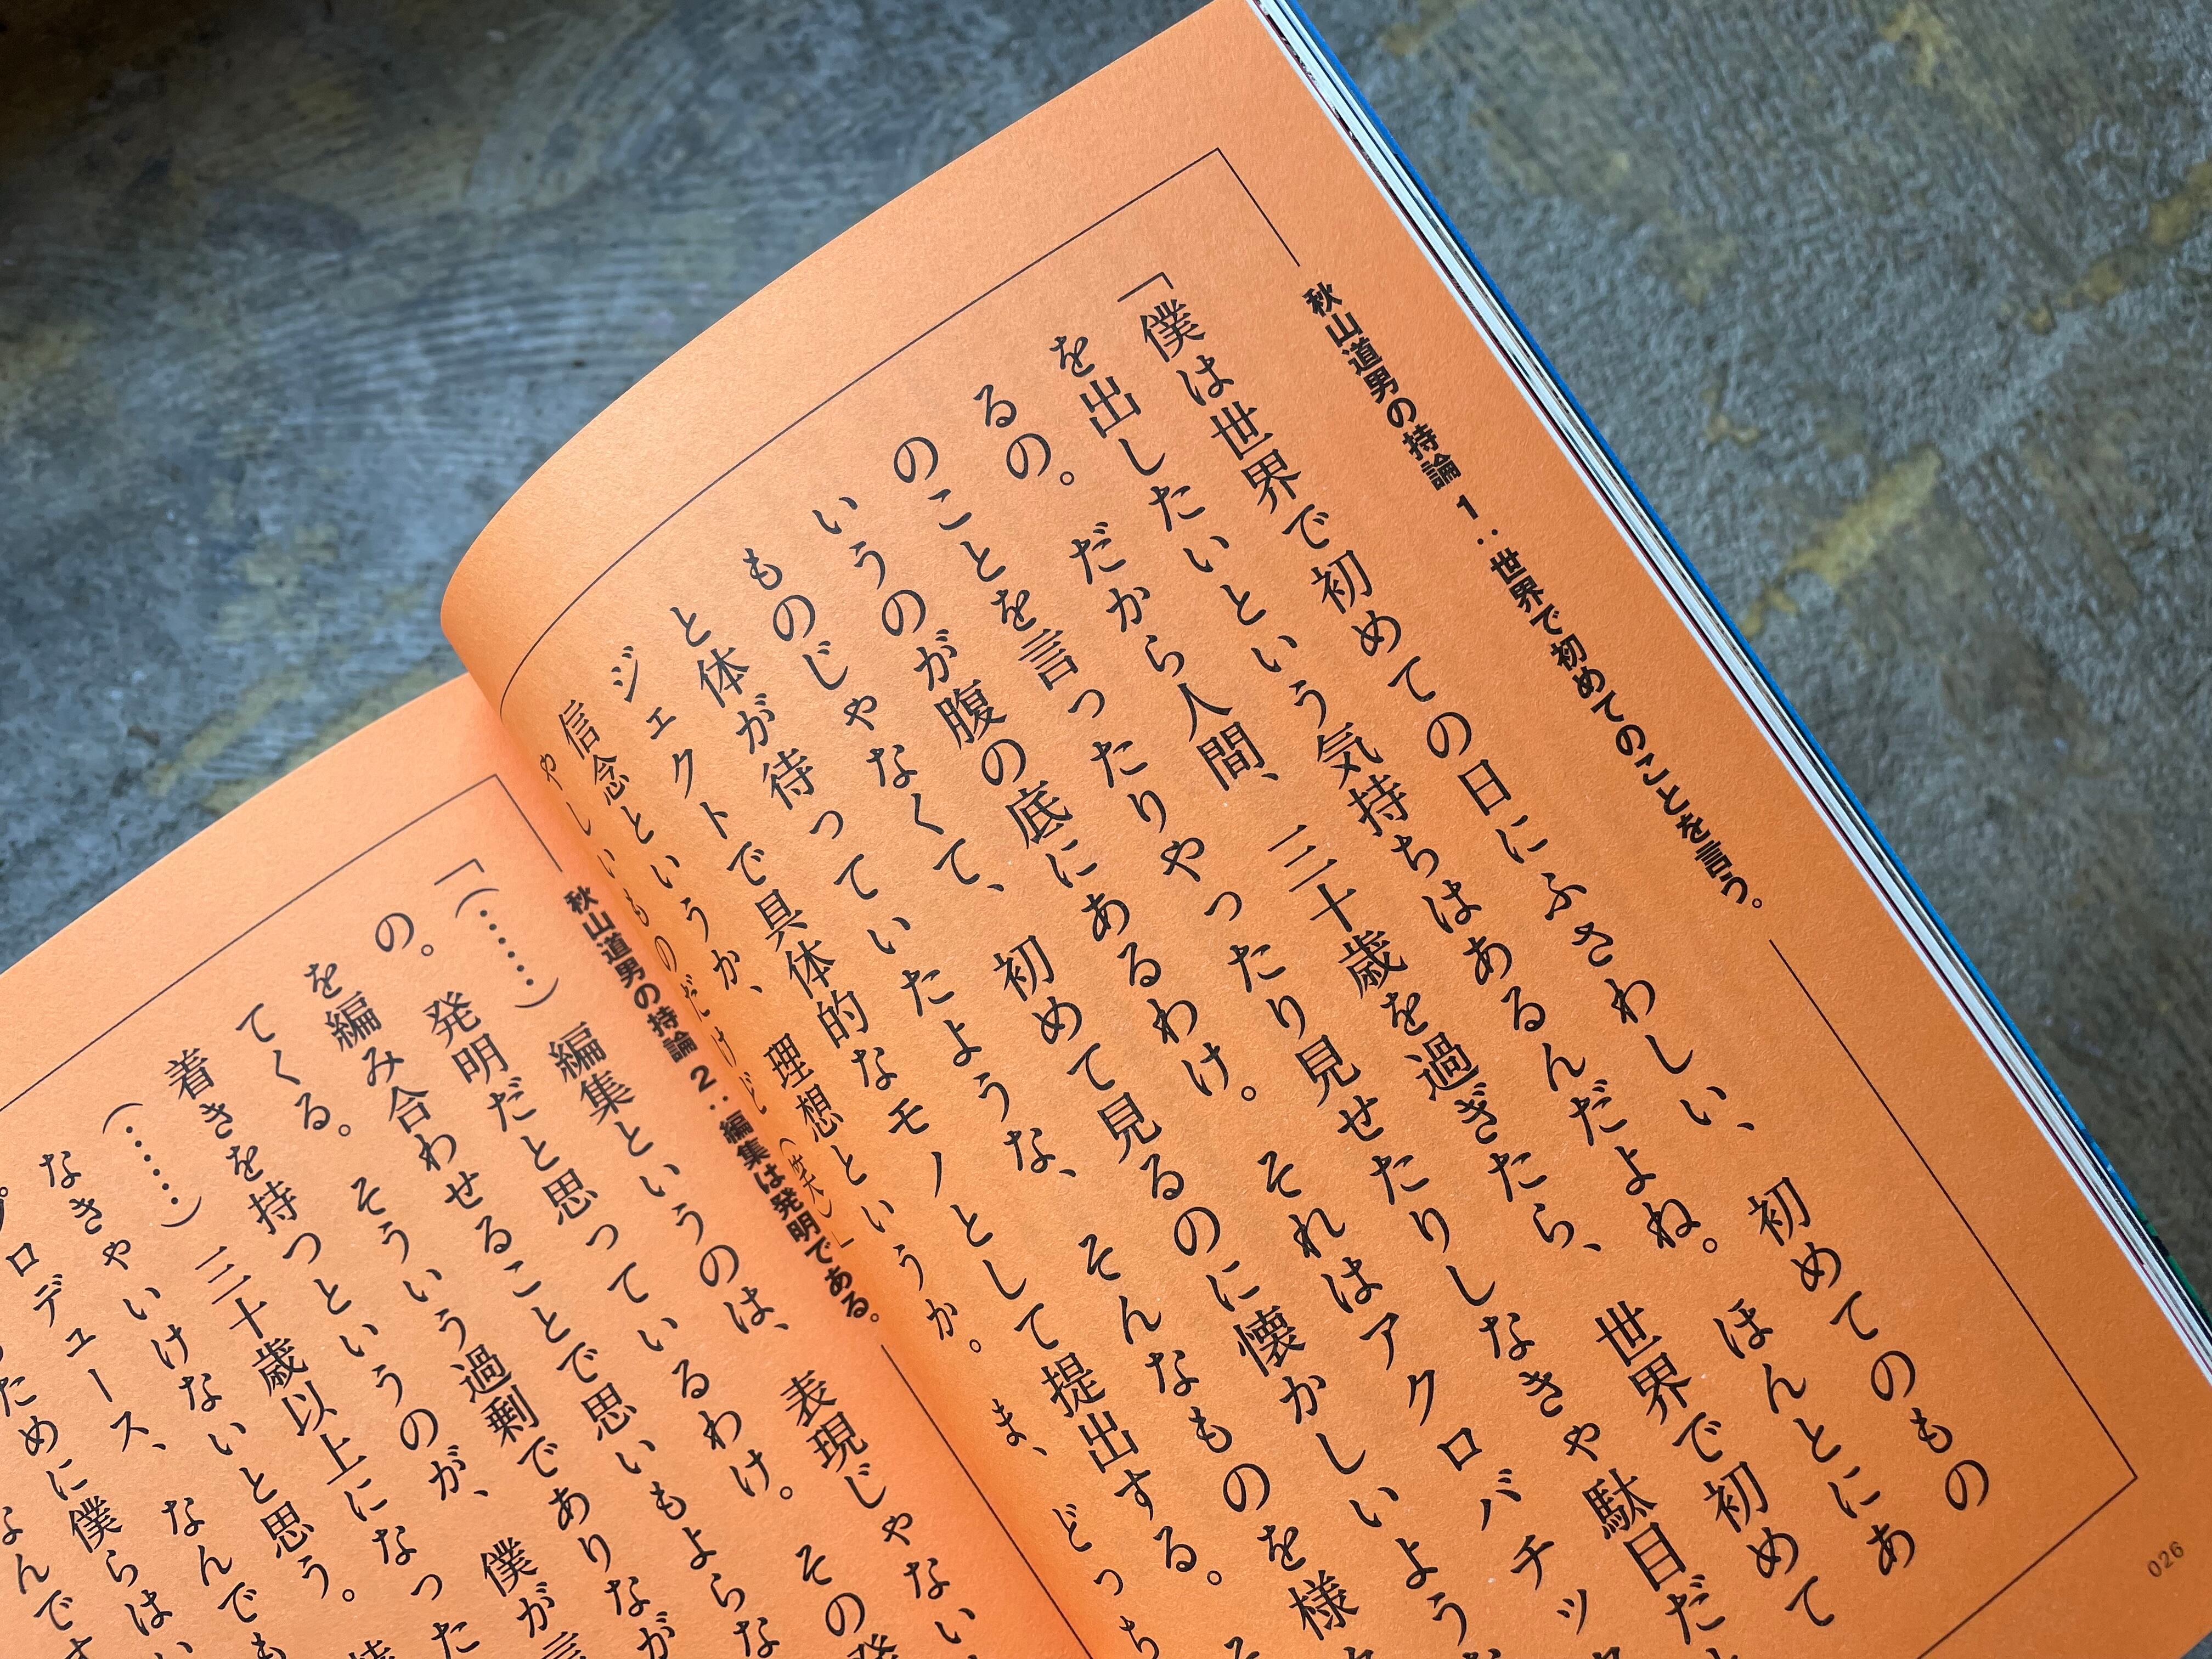 秋山道男の持論 1:世界で初めてのことを言う。
「僕は世界で初めての日にふさわしい、初めてのもの
を出したいという気持ちはあるんだよね。ほんとにあ
るの。だから人間、三十歳を過ぎたら、世界で初めて
のことを言ったりやったり見せたりしなきゃ駄目だ
いうのが腹の底にあるわけ。それはアクロバチッ
ものじゃなくて、初めて見るのに懐かしいよう
と体が待っていたような、そんなものを様
ジェクトで具体的なモノとして提出する。
信念というか、理想というか。ま、どっち
やしいものだけど
026
秋山道男の持論 2:編集は発明である。
「(……)編集というのは、表現じゃない
の。発明だと思っているわけ。その発
を編み合わせることで思いもよらな
てくる。そういう過剰でありなが
着きを持つというのが、僕が言
(……)三十歳以上になった
なきゃいけないと思う。
ロデュース、なんでも
ために僕らは
なんです